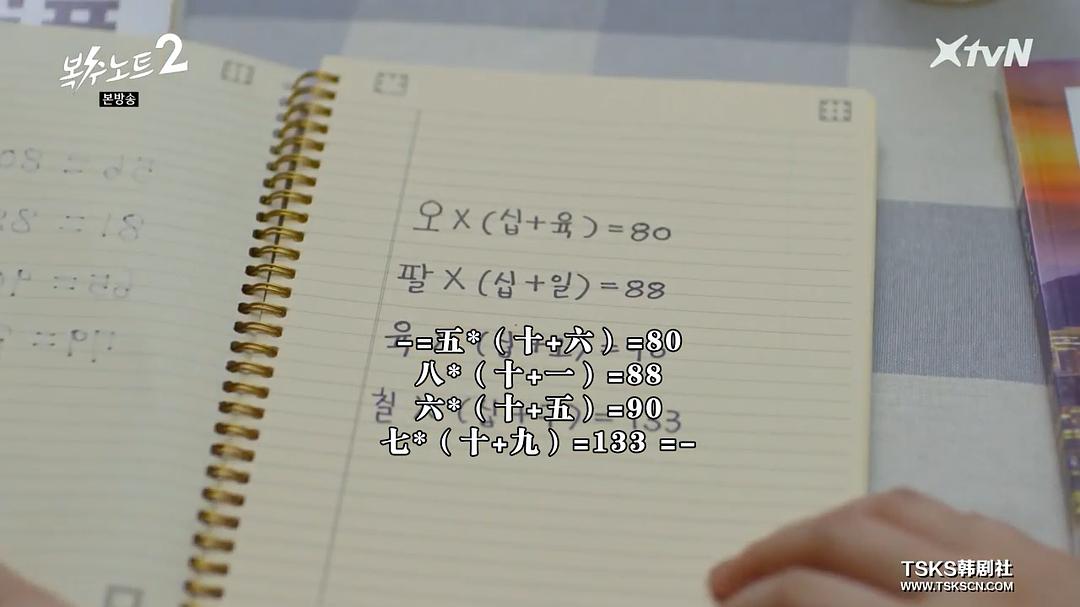 복수노트2
본방송
XtvN
오 X (십+육) = 80
팔 X (십+일) = 88
육
칠
133
-=五*（十+六）=80
八*（十+一）=88
六*（十+五）=90
七*（十+九）=133 =-
TSKS韩剧社
WWW.TSKSCN.COM